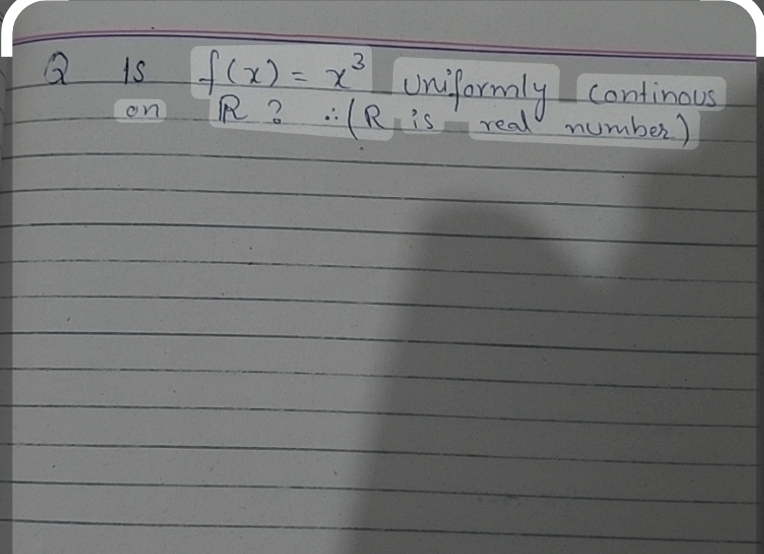 Q Is f(x) = x³ Uniformly Continous
on R ? ∴ (R is real number)